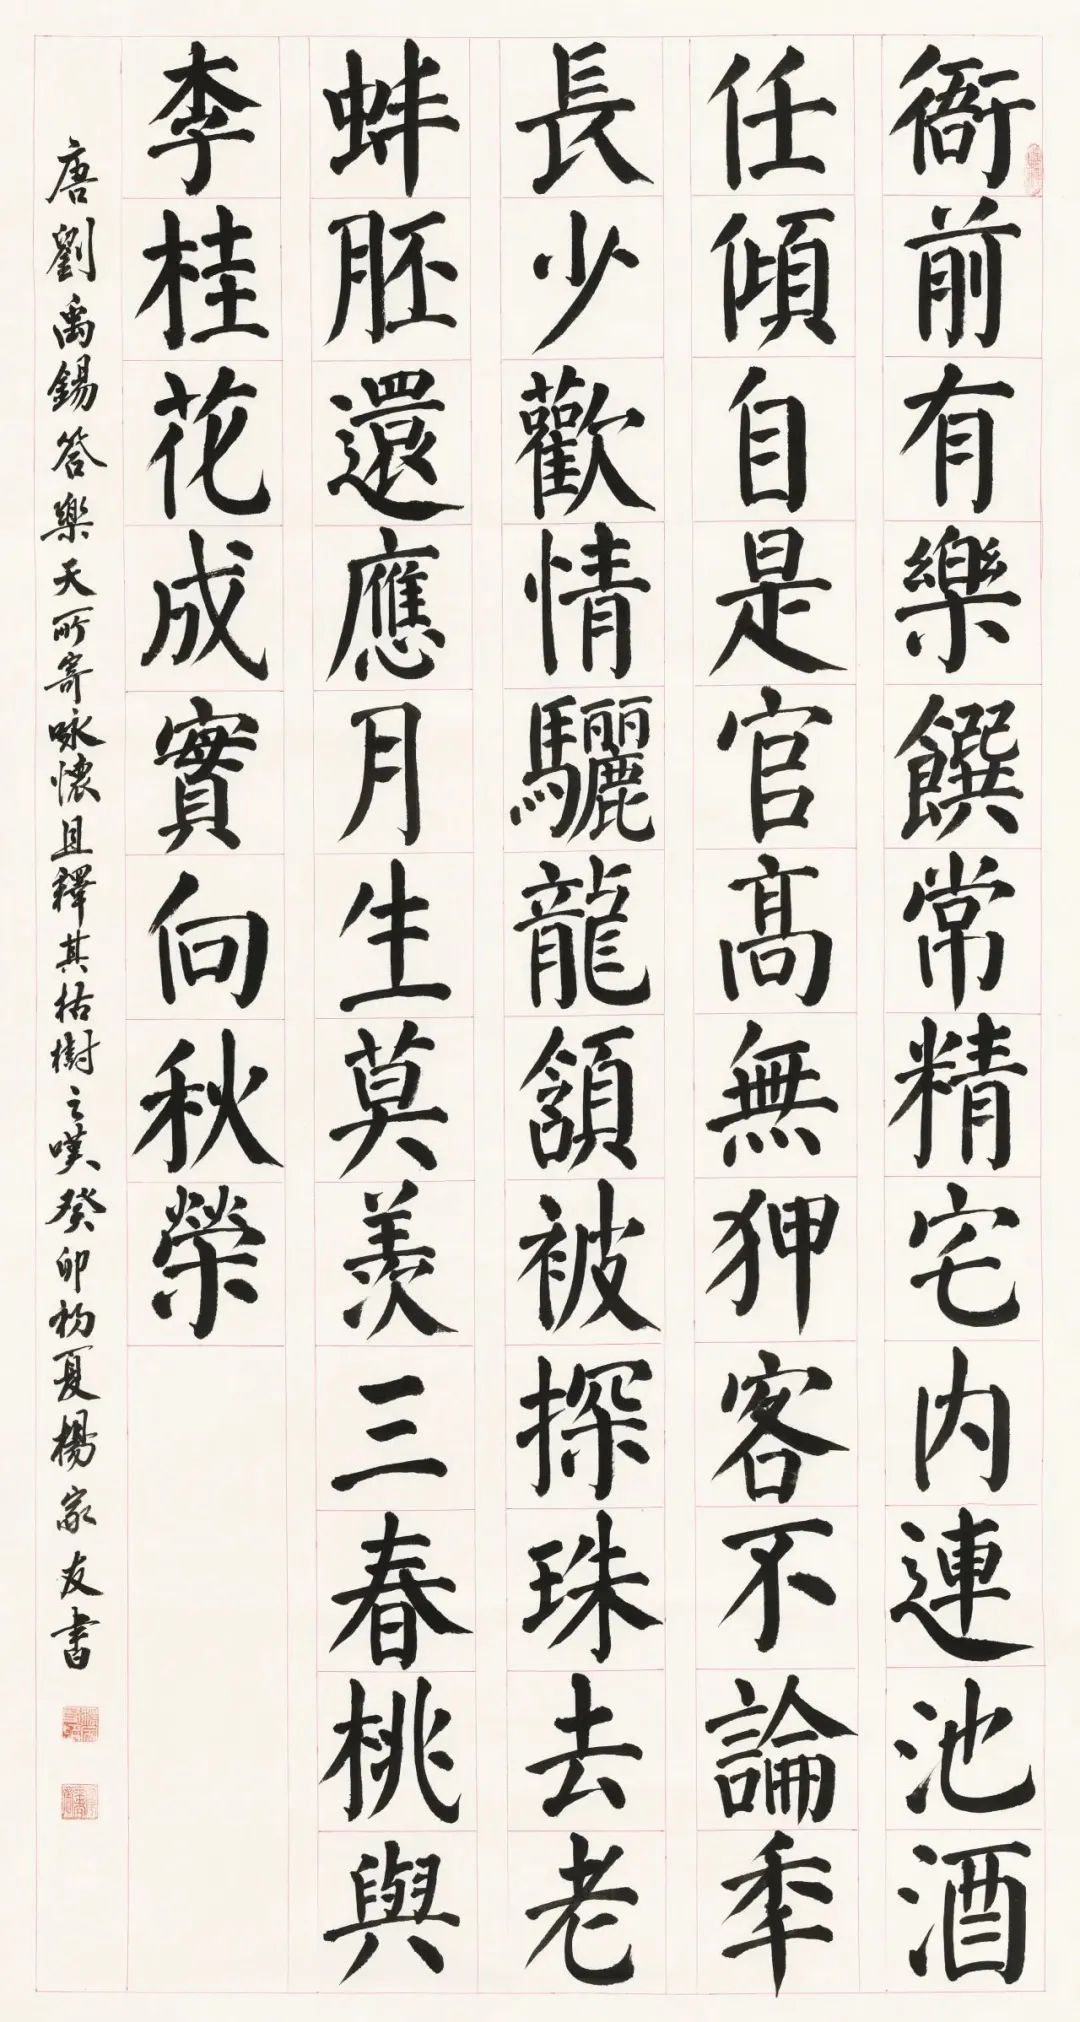 衙前有樂饌常精宅内連池酒
任傾自是官高無狎客不論秊
長少歡情驪龍頷被探珠去老
蚌胚還應月生莫羨三春桃與
李桂花成實向秋榮
唐劉禹錫答樂天所寄咏懷且釋其枯樹之嘆癸卯初夏楊家友書